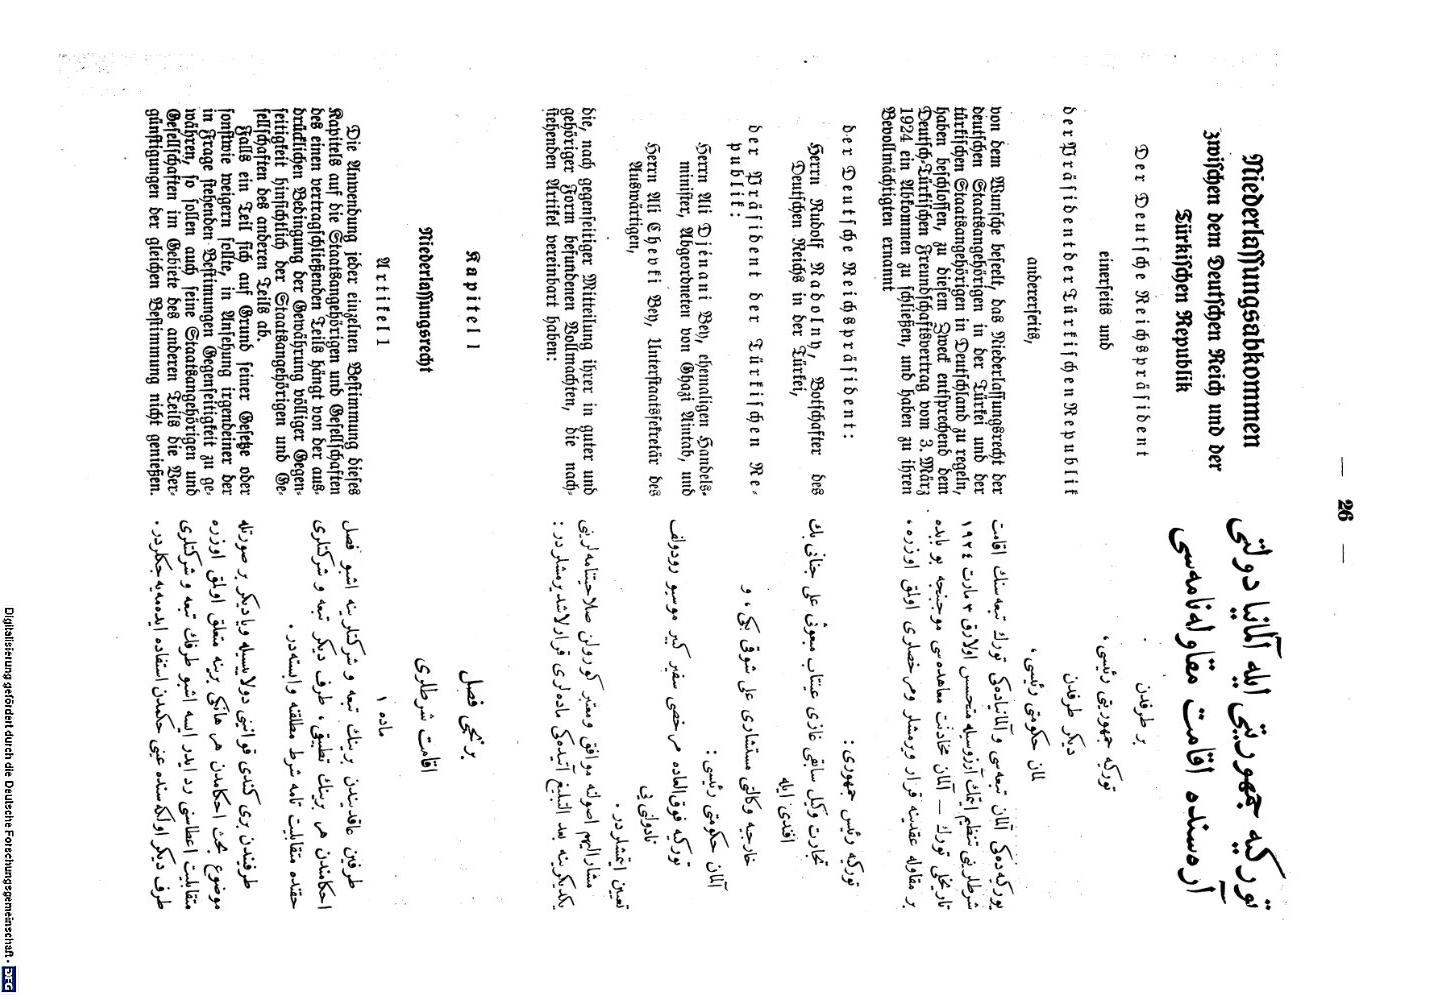 — 26 —
Niederlassungsabkommen
zwischen dem Deutschen Reich und der
Türkischen Republik
Der Deutsche Reichspräsident
einerseits und
der Präsident der Türkischen Republik
andererseits,
von dem Wunsche beseelt, das Niederlassungsrecht der
deutschen Staatsangehörigen in der Türkei und der
türkischen Staatsangehörigen in Deutschland zu regeln,
haben beschlossen, zu diesem Zweck entsprechend dem
Deutsch-Türkischen Freundschaftsvertrag vom 3. März
1924 ein Abkommen zu schließen, und haben zu ihren
Bevollmächtigten ernannt
der Deutsche Reichspräsident:
Herrn Rudolf Nadolny, Botschafter des
Deutschen Reichs in der Türkei,
der Präsident der Türkischen Re-
publik:
Herrn Ali Djénani Bey, ehemaligen Handels-
minister, Abgeordneten von Ghazi Aintab, und
Herrn Ali Chevki Bey, Unterstaatssekretär des
Auswärtigen,
die, nach gegenseitiger Mitteilung ihrer in guter und
gehöriger Form befundenen Vollmachten, die nach-
stehenden Artikel vereinbart haben:
Kapitel I
Niederlassungsrecht
Artikel 1
Die Anwendung jeder einzelnen Bestimmung dieses
Kapitels auf die Staatsangehörigen und Gesellschaften
des einen vertragschließenden Teils hängt von der aus-
drücklichen Bedingung der Gewährung völliger Gegen-
seitigkeit hinsichtlich der Staatsangehörigen und Ge-
sellschaften des anderen Teils ab.
Falls ein Teil sich auf Grund seiner Gesetze oder
sonstwie weigern sollte, in Ansehung irgendeiner der
in Frage stehenden Bestimmungen Gegenseitigkeit zu ge-
währen, so sollen auch seine Staatsangehörigen und
Gesellschaften im Gebiete des anderen Teils die Ver-
günstigungen der gleichen Bestimmung nicht genießen.
توركیه جمهوریتی ایله آلمانیا دولتی
آره‌سنده اقامت مقاوله‌نامه‌سی
بر طرفدن
توركیه جمهوریتی رئیسی،
دیگر طرفدن
آلمان حكومتی رئیسی،
توركیه‌ده‌كی آلمان تبعه‌سی و آلمانیاده‌كی تورك تبعه‌سنك اقامت
شرطلرینی تنظیم ایتمك آرزوسیله متحسس اولارق ٣ مارت ١٩٢٤
تاریخلی تورك — آلمان مخادنت معاهده‌سی موجبنجه بو بابده
بر مقاوله عقدینه قرار ویرمشلر ومرخصلری اولق اوزره،
توركیه رئیس جمهوری:
تجارت وكیل سابقی غازی عینتاب مبعوثی علی جنانی بك
افندی ایله
خارجیه وكالتی مستشاری علی شوقی بكی، و
آلمان حكومتی رئیسی:
توركیه فوق‌العاده مرخصی سفیر كبیر موسیو رودولف
نادولنی یی
تعیین ایتمشلردر.
مشارالیهم اصولنه موافق ومعتبر كورولن صلاحیتنامه‌لرینی
یكدیگرینه بعد التبلیغ آتیده‌كی ماده‌لری قرارلاشدیرمشلردر:
برنجی فصل
اقامت شرطلری
ماده ١
طرفین عاقدیندن برینك تبعه و شركتلرینه اشبو فصل
احكامندن هر برینك تطبیقی، طرف دیگر تبعه و شركتلری
حقنده متقابلیت تامه شرط مطلقنه وابسته‌در.
طرفیندن بری كندی قوانینی دولاییسیله ویا دیگر بر صورتله
موضوع بحث احكامدن هر هانكی برینه متعلق اولق اوزره
متقابلیت اعطاسنی رد ایدر ایسه اشبو طرفك تبعه و شركتلری
طرف دیگر اولكه‌سنده عینی حكمدن استفاده ایده‌میه‌جكلردر.
Digitalisierung gefördert durch die Deutsche Forschungsgemeinschaft · DFG